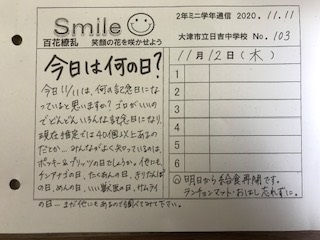 Smile
百花繚乱 笑顔の花を咲かせよう
2年ミニ学年通信 2020. 11.11
大津市立日吉中学校 No. 103
今日は何の日?
今日11/11は、何の記念日にな
っていると思いますか? ゴロがいいの
でどんどんいろんな記念日になり、
現在推定では40個以上あるの
だとか…みんながよく知っているのは、
ポッキー&プリッツの日かしらか。他にも
チンアナゴの日、たくあんの日、きりたんぽ
の日、めんの日、いい獣医の日、サムライ
の日…まだ他にもあるので調べてみて下さい。
11月12日(木)
1
2
3
4
5
6
明日から給食再開です。
ランチョンマット・おはし忘れずに。